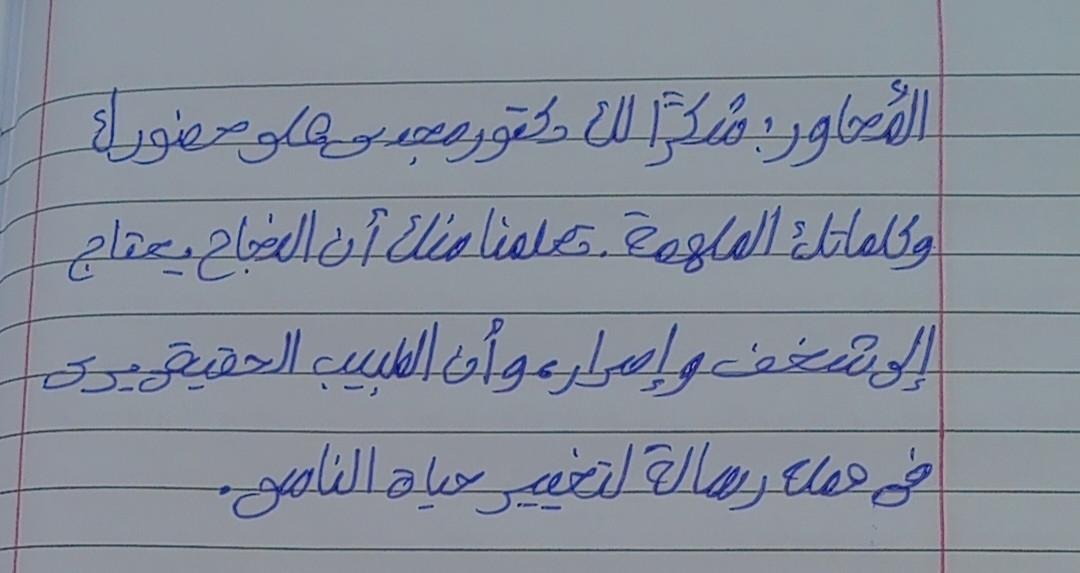 المُحاور: شكرًا لك دكتور مجدى على حضورك
وكلماتك الملهمة. تعلمنا منك أن النجاح يحتاج
إلى شغف وإصرار، وأن الطبيب الحقيقى يرى
فى عمله رسالة لتغيير حياة الناس.